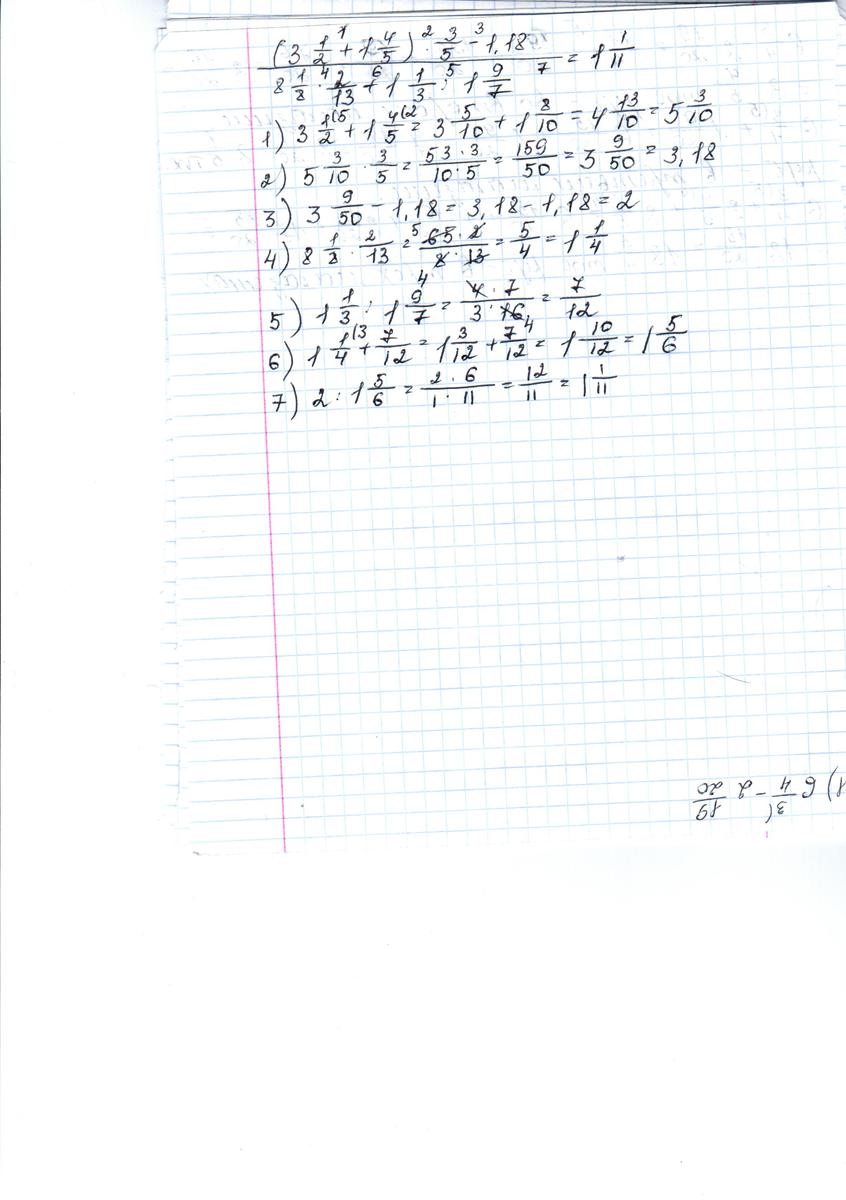 (3 1/2 + 1 4/5) · 3/5 - 1,18
1 2 3
8 1/8 · 2/13 + 1 1/3 : 1 9/7 = 1 1/11
4 6 5 7
1) 3 1/2(5 + 1 4/5(2 = 3 5/10 + 1 8/10 = 4 13/10 = 5 3/10
2) 5 3/10 · 3/5 = 53·3/10·5 = 159/50 = 3 9/50 = 3,18
3) 3 9/50 - 1,18 = 3,18 - 1,18 = 2
4) 8 1/8 · 2/13 = 65·2/8·13 = 5/4 = 1 1/4
5 4
5) 1 1/3 : 1 9/7 = 4·7/3·16 = 7/12
6) 1 1/4(3 + 7/12 = 1 3/12 + 7/12 = 1 10/12 = 1 5/6
4
7) 2 : 1 5/6 = 2·6/1·11 = 12/11 = 1 1/11
1) 6 3/4 - 2 19/20